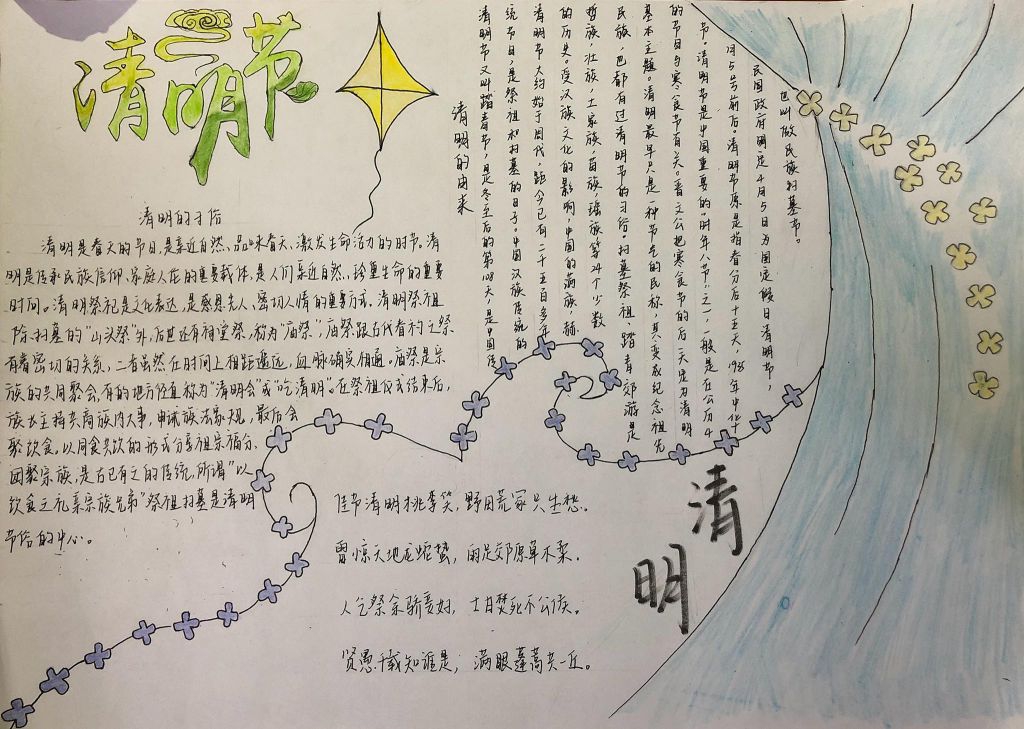 清明节
清明的习俗
清明是春天的节日,是亲近自然、品味春天、激发生命活力的时节。清
明是传承民族信仰、家庭人伦的重要载体,是人们亲近自然、珍重生命的重要
时间。清明祭祀是文化表达,是感恩先人、密切人情的重要方式。清明祭祖
除扫墓的“山头祭”外,后世还有祠堂祭,称为“庙祭”,庙祭跟古代春礿之祭
有着密切的关系,二者虽然在时间上相距遥远,血脉确实相通。庙祭是宗
族的共同聚会,有的地方径直称为“清明会”或“吃清明”。在祭祖仪式结束后,
族长主持共商族内大事,申斌族法家规,最后会
聚饮食。以同食共饮的形式分享祖宗福分、
团聚宗族,是古已有之的传统,所谓“以
饮食之礼亲宗族兄弟”祭祖扫墓是清明
节俗的中心。
清明的由来
清明节又叫踏青节,是冬至后的第108天,是中国传
统节日,是祭祖和扫墓的日子。中国汉族传统的
清明节大约始于周代,距今已有二千五百多年
的历史。受汉族文化的影响,中国的满族,赫
哲族,壮族,土家族,苗族,瑶族等24个少数
民族,也都有过清明节的习俗。扫墓祭祖、踏青郊游是
基本主题。清明最早只是一种节气的民称,其变成纪念祖先
的节日与寒食节有关。晋文公把寒食节的后一天定为清明
节。清明节是中国重要的“时年八节”之一,一般是在公历4
月5号前后。清明节原是指春分后十五天,1935年中华
民国政府明定4月5日为国定假日清明节,
也叫做民族扫墓节。
佳节清明桃李笑,野田荒冢只生愁。
雷惊天地龙蛇蛰,雨足郊原草木柔。
人乞祭余骄妾妇,士甘焚死不公侯。
贤愚千载知谁是,满眼蓬蒿共一丘。
清
明